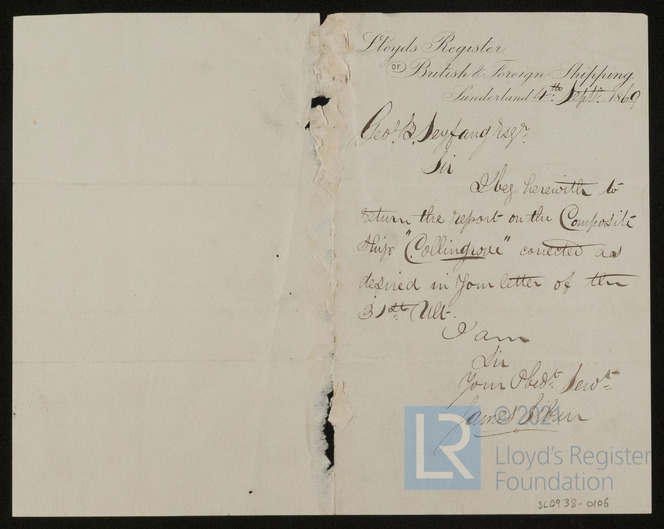 Lloyds Register
OF British & Foreign Shipping.
Sunderland 4th Septr. 1869
Geo. B. Seyfang Esqr.
Sir
I beg herewith to
return the report on the Composite
Ship "Collingwode" corrected as
desired in your letter of the
31st Ult.
I am
Sir
Your Obedt. Servt.
James
© 2021
LR Lloyd's Register
Foundation
SLD938-0106